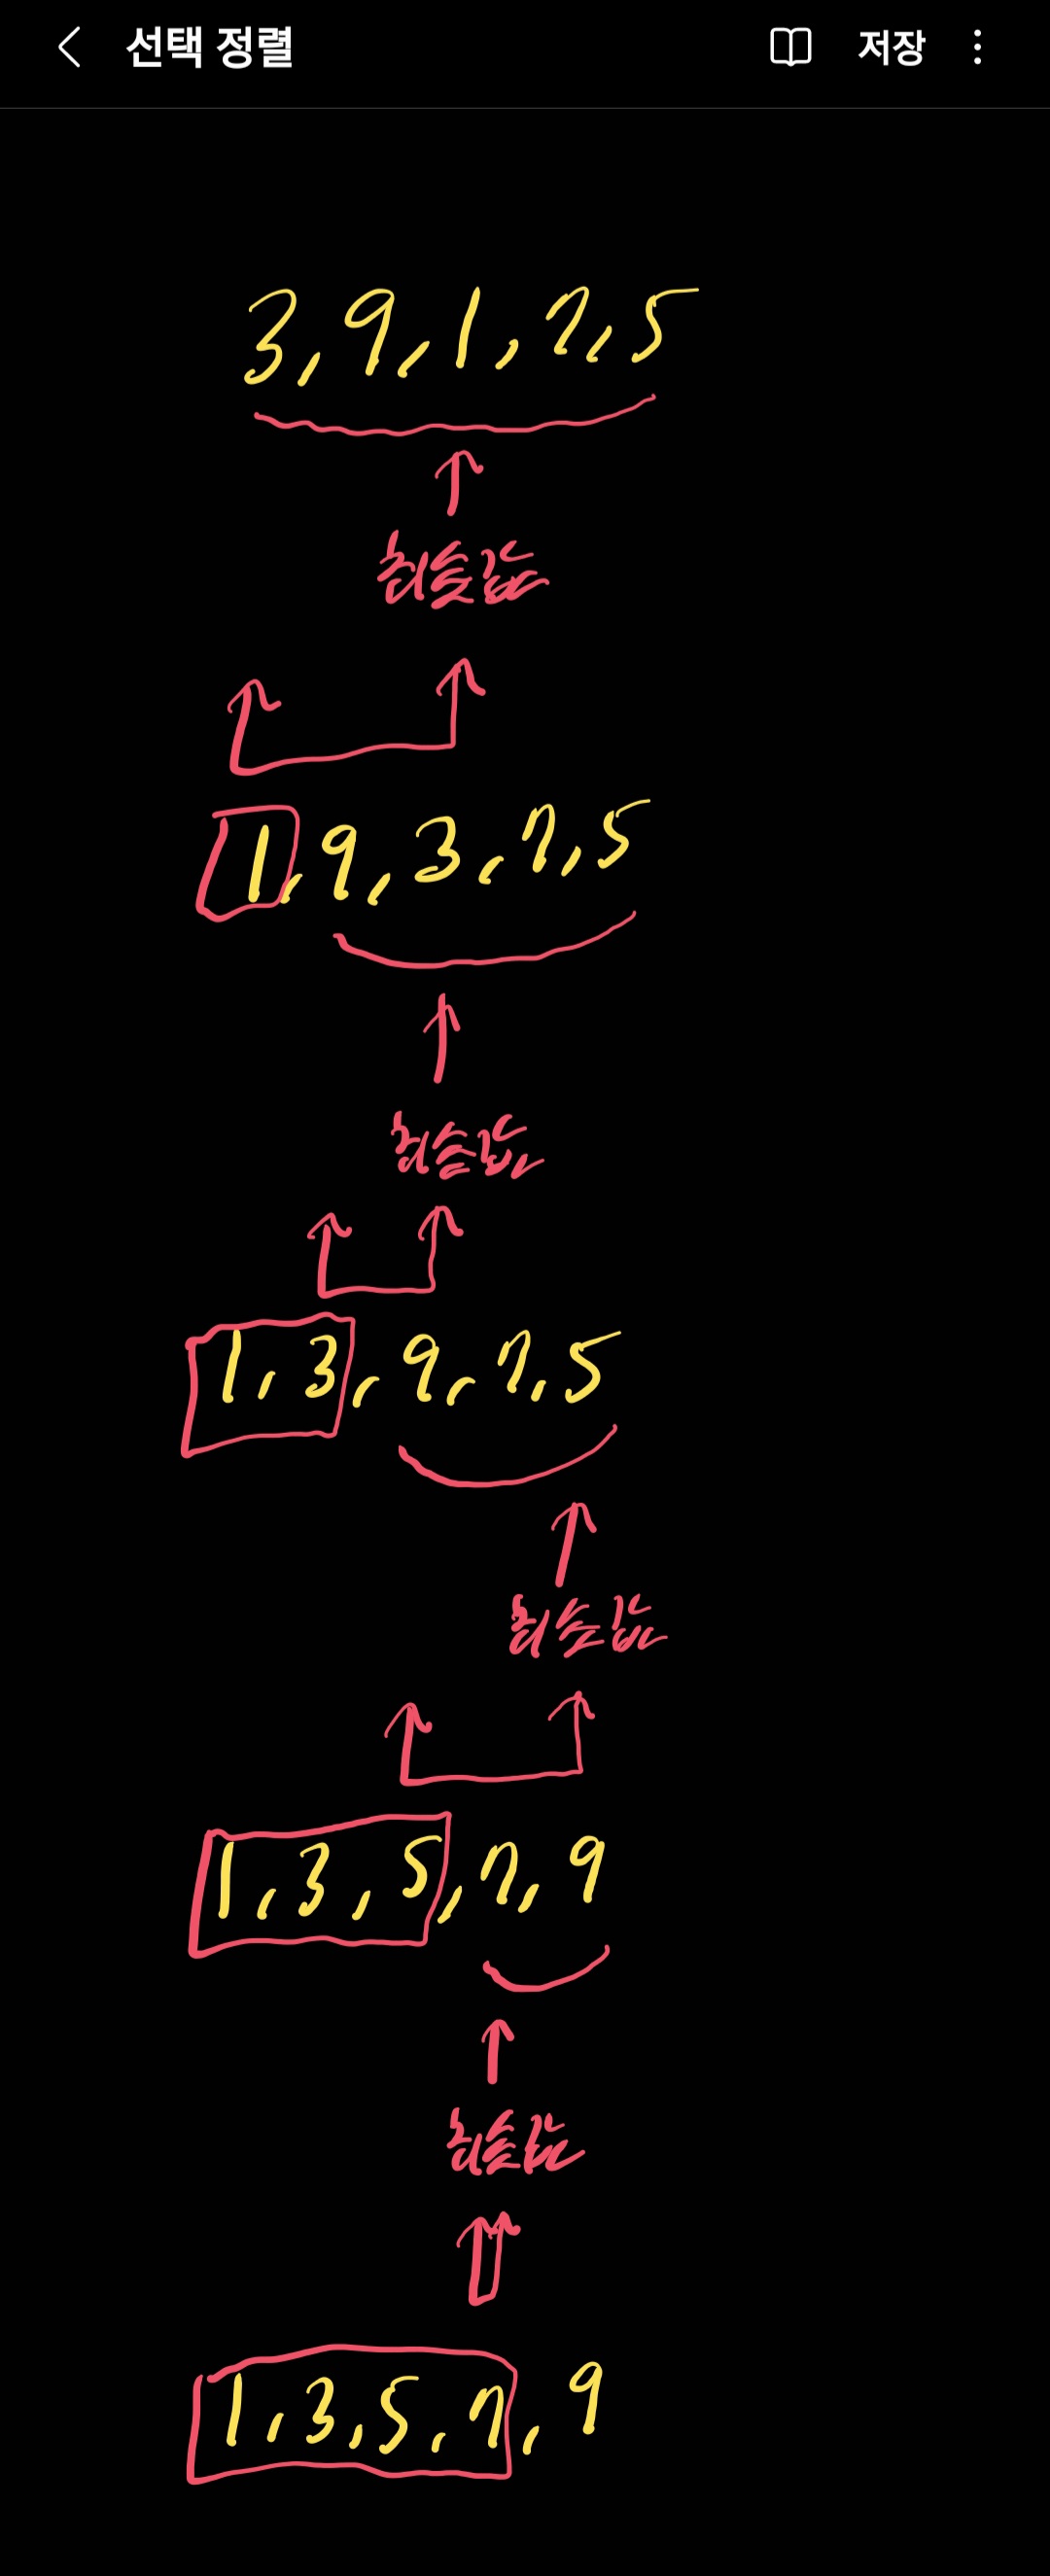 선택 정렬 저장
3, 9, 1, 7, 5
최솟값
1, 9, 3, 7, 5
최솟값
1, 3, 9, 7, 5
최솟값
1, 3, 5, 7, 9
최솟값
1, 3, 5, 7, 9